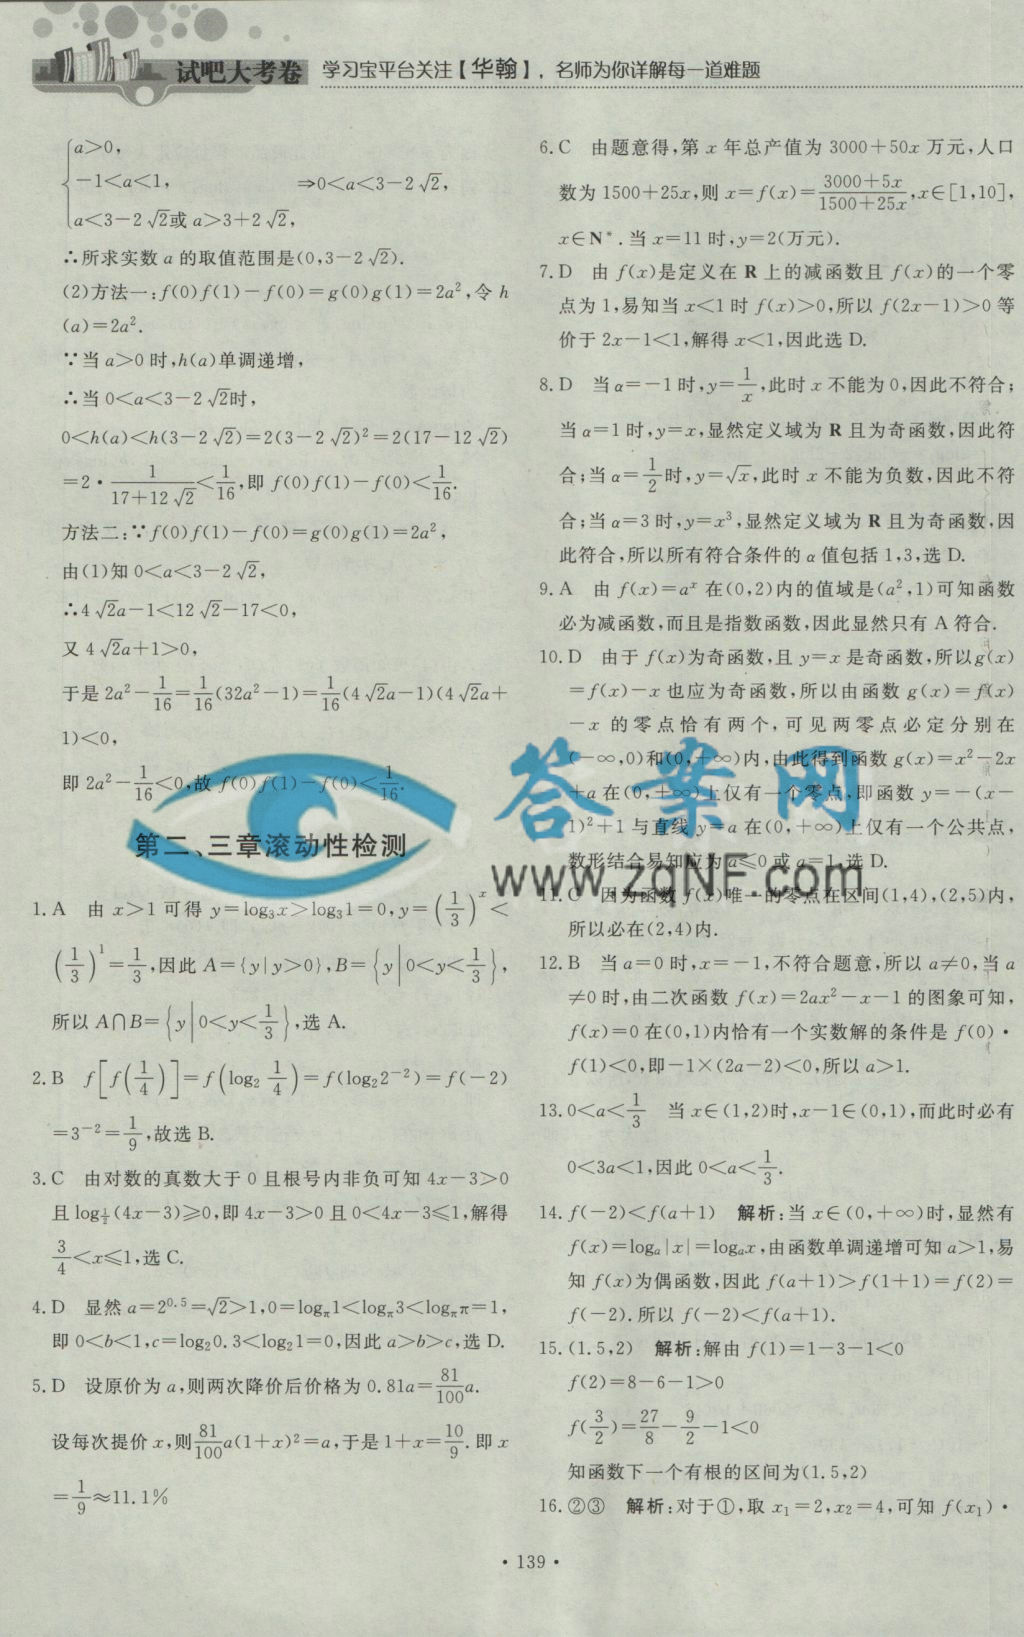 试吧大考卷 学习宝平台关注【华翰】，名师为你详解每一道难题
{a>0,
-1<a<1, ⇒0<a<3-2√2,
a<3-2√2或a>3+2√2,
∴所求实数a的取值范围是(0,3-2√2).
(2)方法一:f(0)f(1)-f(0)=g(0)g(1)=2a²,令h
(a)=2a².
∵当a>0时,h(a)单调递增,
∴当0<a<3-2√2时,
0<h(a)<h(3-2√2)=2(3-2√2)²=2(17-12√2)
=2·1/(17+12√2)<1/16,即f(0)f(1)-f(0)<1/16.
方法二:∵f(0)f(1)-f(0)=g(0)g(1)=2a²,
由(1)知0<a<3-2√2,
∴4√2a-1<12√2-17<0,
又4√2a+1>0,
于是2a²-1/16=1/16(32a²-1)=1/16(4√2a-1)(4√2a+
1)<0,
即2a²-1/16<0,故f(0)f(1)-f(0)<1/16.
第二、三章滚动性检测
1. A 由x>1可得y=log₃x>log₃1=0,y=(1/3)^x<
(1/3)¹=1/3,因此A={y|y>0},B={y|0<y<1/3},
所以A∩B={y|0<y<1/3},选A.
2. B f[f(1/4)]=f(log₂1/4)=f(log₂2⁻²)=f(-2)
=3⁻²=1/9,故选B.
3. C 由对数的真数大于0且根号内非负可知4x-3>0
且log_{1/2}(4x-3)≥0,即4x-3>0且0<4x-3≤1,解得
3/4<x≤1,选C.
4. D 显然a=2^0.5=√2>1,0=log_π1<log_π3<log_ππ=1,
即0<b<1,c=log₂0.3<log₂1=0,因此a>b>c,选D.
5. D 设原价为a,则两次降价后价格为0.81a=81/100a.
设每次提价x,则81/100a(1+x)²=a,于是1+x=10/9.即x
=1/9≈11.1%
6. C 由题意得,第x年总产值为3000+50x万元,人口
数为1500+25x,则x=f(x)=(3000+5x)/(1500+25x),x∈[1,10],
x∈N*.当x=11时,y=2(万元).
7. D 由f(x)是定义在R上的减函数且f(x)的一个零
点为1,易知当x<1时f(x)>0,所以f(2x-1)>0等
价于2x-1<1,解得x<1,因此选D.
8. D 当α=-1时,y=1/x,此时x不能为0,因此不符合;
当α=1时,y=x,显然定义域为R且为奇函数,因此符
合;当α=1/2时,y=√x,此时x不能为负数,因此不符
合;当α=3时,y=x³,显然定义域为R且为奇函数,因
此符合,所以所有符合条件的α值包括1,3,选D.
9. A 由f(x)=a^x在(0,2)内的值域是(a²,1)可知函数
必为减函数,而且是指数函数,因此显然只有A符合.
10. D 由于f(x)为奇函数,且y=x是奇函数,所以g(x)
=f(x)-x也应为奇函数,所以由函数g(x)=f(x)
-x的零点恰有两个,可见两零点必定分别在
(-∞,0)和(0,+∞)内,由此得到函数g(x)=x²-2x
+a在(0,+∞)上仅有一个零点,即函数y=-(x-
1)²+1与直线y=a在(0,+∞)上仅有一个公共点,
数形结合易知应为a≤0或a=1.选D.
11. C 因为函数f(x)唯一的零点在区间(1,4),(2,5)内,
所以必在(2,4)内.
12. B 当a=0时,x=-1,不符合题意,所以a≠0,当a
≠0时,由二次函数f(x)=2ax²-x-1的图象可知,
f(x)=0在(0,1)内恰有一个实数解的条件是f(0)·
f(1)<0,即-1×(2a-2)<0,所以a>1.
13. 0<a<1/3 当x∈(1,2)时,x-1∈(0,1),而此时必有
0<3a<1,因此0<a<1/3.
14. f(-2)<f(a+1) 解析:当x∈(0,+∞)时,显然有
f(x)=logₐ|x|=logₐx,由函数单调递增可知a>1,易
知f(x)为偶函数,因此f(a+1)>f(1+1)=f(2)=
f(-2).所以f(-2)<f(a+1).
15. (1.5,2) 解析:解由f(1)=1-3-1<0
f(2)=8-6-1>0
f(3/2)=27/8-9/2-1<0
知函数下一个有根的区间为(1.5,2)
16. ②③ 解析:对于①,取x₁=2,x₂=4,可知f(x₁)·
答案网
www.zqNF.com
·139·